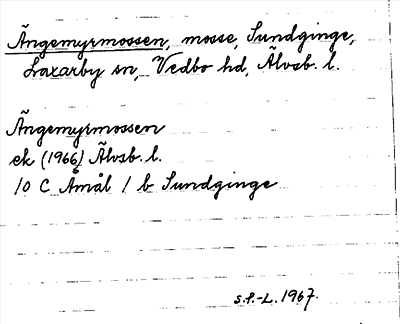 Ängemyrmossen, mosse, Sundginge,
Laxarby sn, Vedbo hd, Älvsb. l.
Ängemyrmossen
ek (1966) Älvsb. l.
10 C Åmål 1 b Sundginge
S.P.-L. 1967.